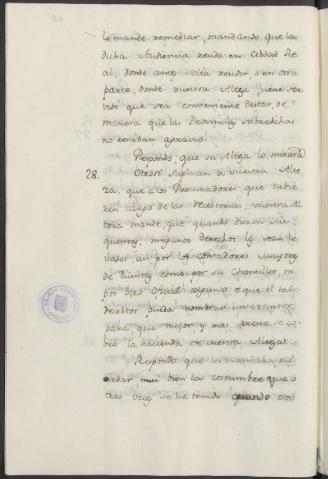 lo mande remediar, mandando que la
dicha Audiencia resida en Cibdad Re
al, donde antes solia residir, o en otra
parte, donde vuestra Alteza fuere
vido que sea conveniente de estar, de
manera que las Provincias sobredichas
no reciban agravio.
Respondo, que su Alteza lo mirará
28. Otrosí suplican a vuestra Alte
za, que a los Procuradores que tubie
ren cargo de las Receptorias, vuestra Al
teza mande, que quando dieren sus
quentas, ningunos derechos les sean le
vados ni por los contadores mayores
de Cuentas como por su Chanciller, ni
por otro Oficial alguno, e que el tal
Receptor pueda nombrar un executor,
para que mejor y mas presto se co
bre la hacienda de vuestra Alteza.
Respondo que les mandará gu
ardar mui bien la costumbre que o
tras veces se ha tenido quando otro